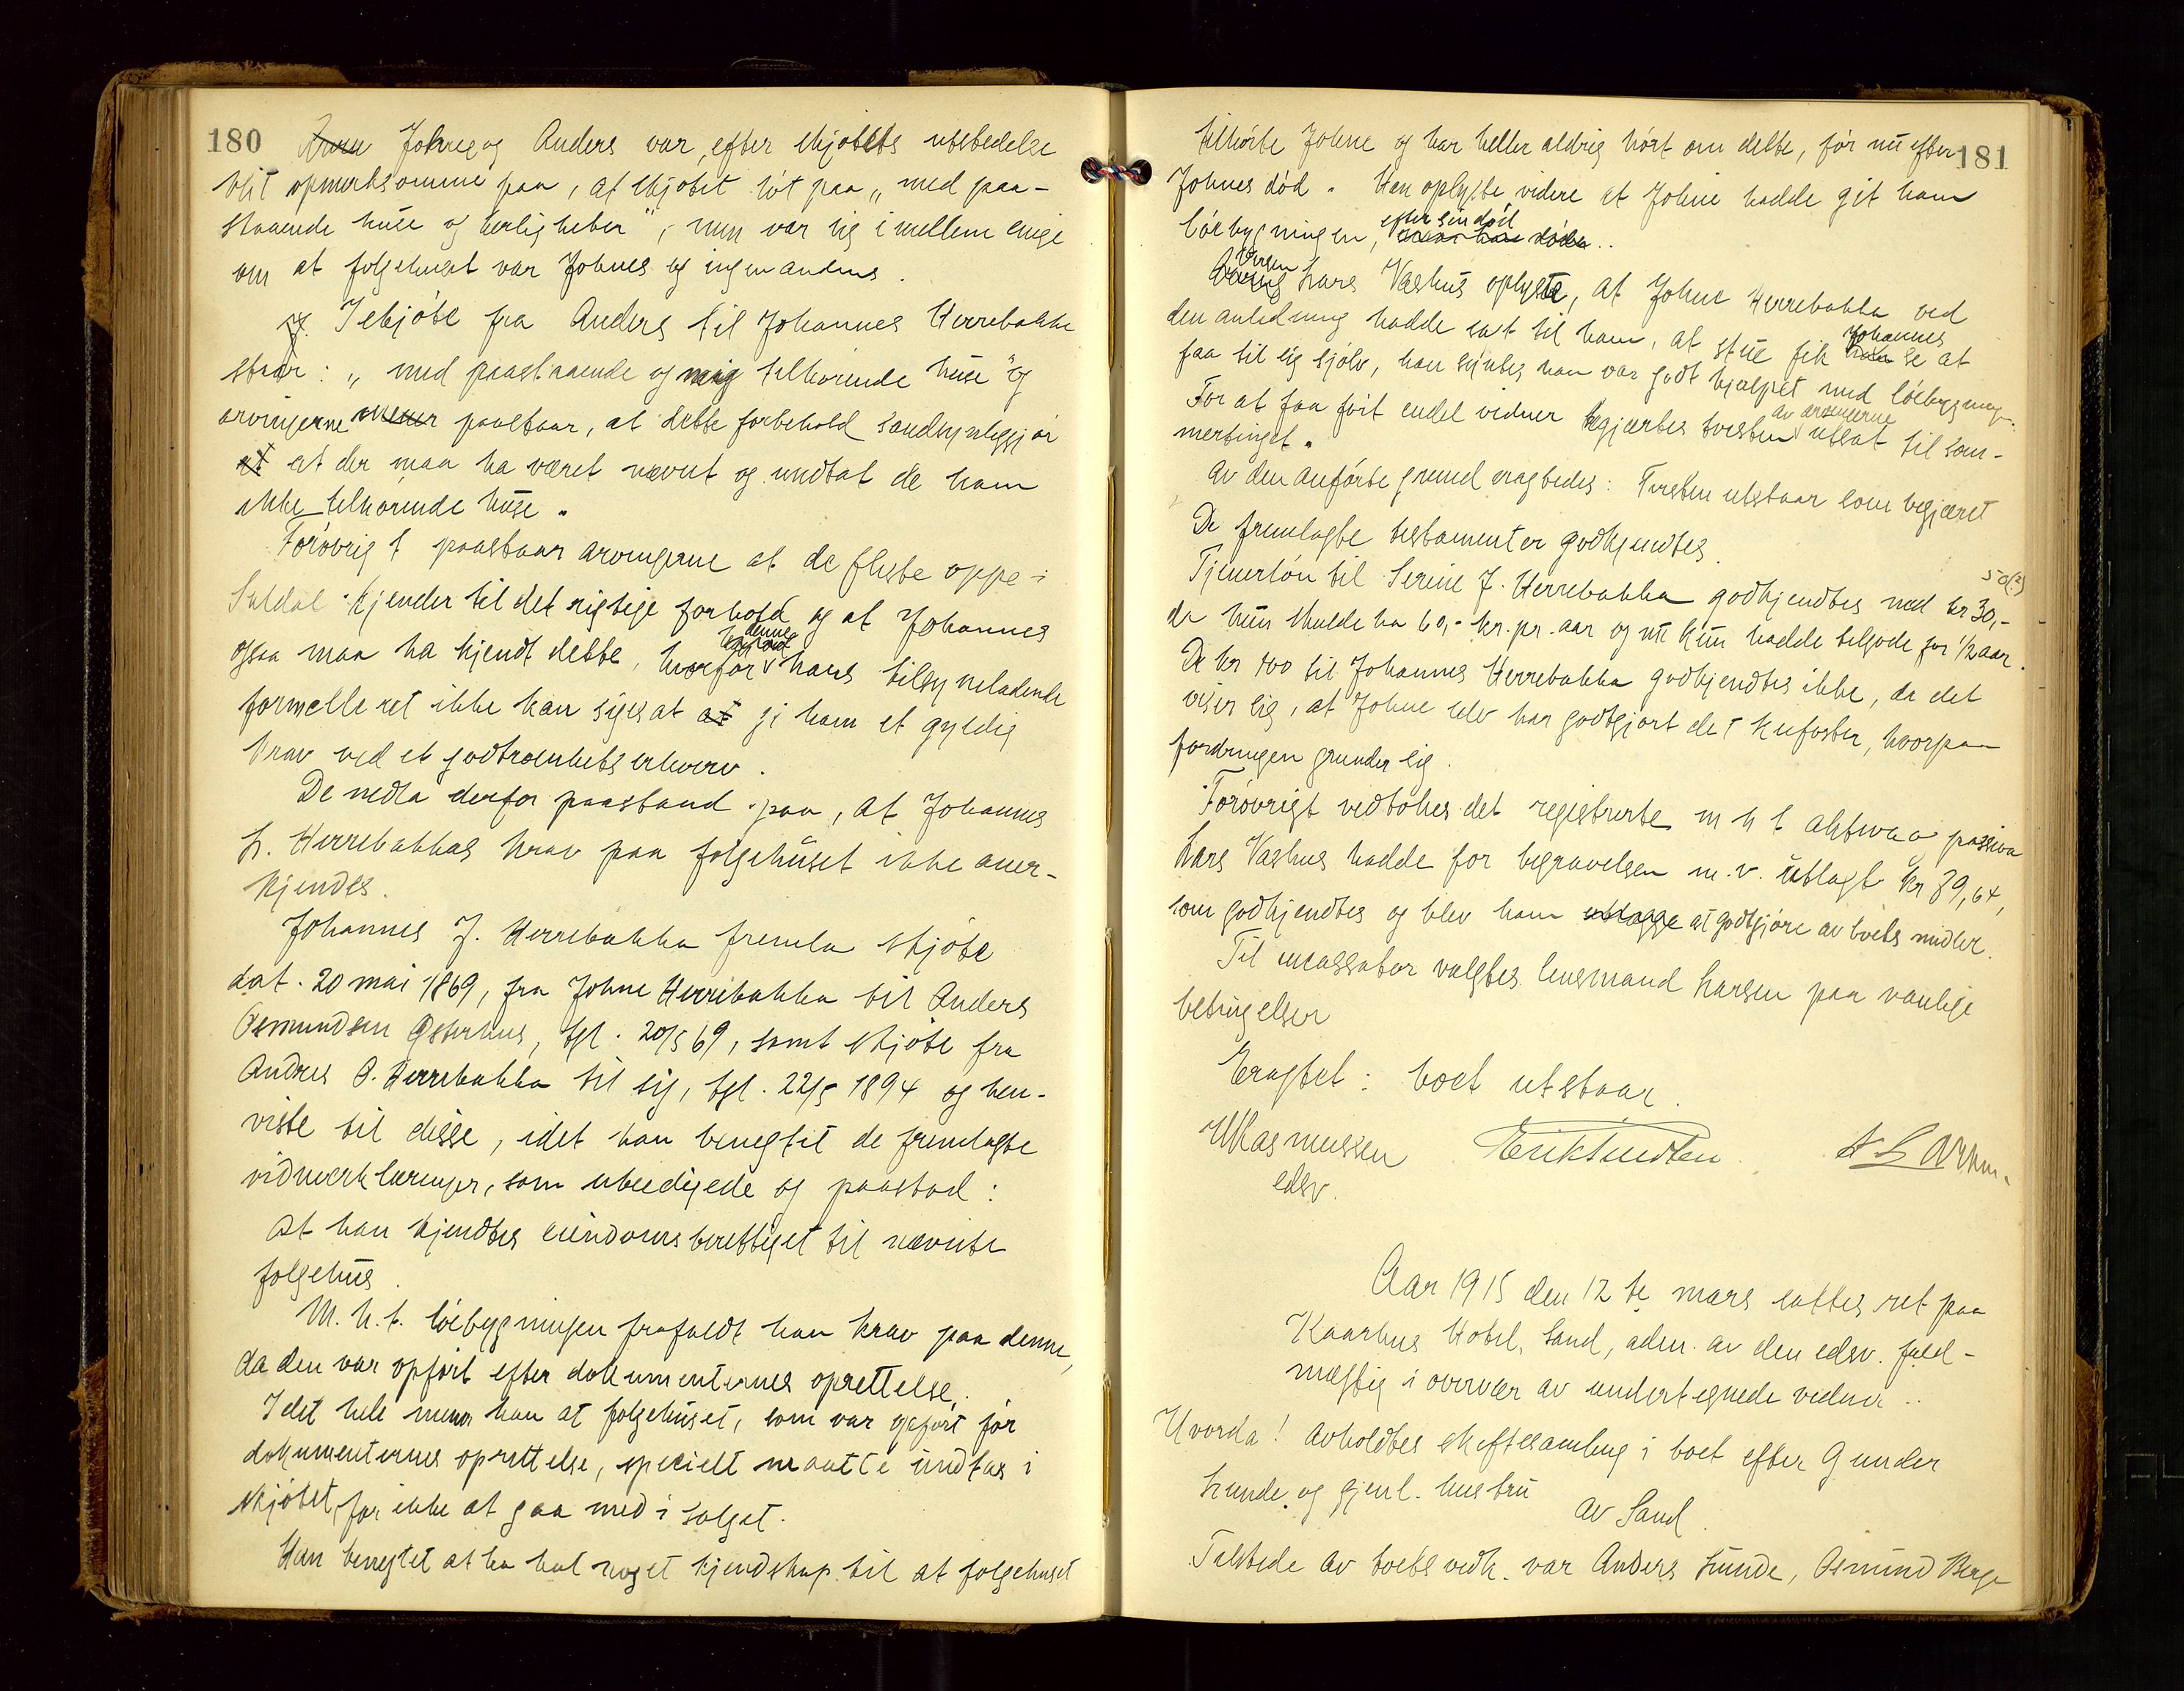 180
Johne og Anders var, efter skjötets utstedelse
blit opmerksomme paa, at skjötet löt paa „med paa-
staaende huse og herligheter", men var sig imellem enige
om at folgehuset var Johnes og ingen andens.
I skjöte fra Anders til Johannes Herrebakka
staar: „med paastaaende og mig tilhörende huse" og
arvingerne paastaar, at dette forbehold sandsynliggjör
at der maa ha været nævnt og undtat de ham
ikke tilhörende huse.
Forövrigt paastaar arvingerne at de fleste oppe i
Suldal kjender til det rigtige forhold og at Johannes
ogsaa maa ha kjendt dette, hvorfor denne hans tilsyneladende
formelle ret ikke kan siges at gi ham et gyldig
krav ved et godtroenhetserhverv.
De nedla derfor paastand paa, at Johannes
J. Herrebakkas krav paa folgehuset ikke aner-
kjendes.
Johannes J. Herrebakka fremla skjöte
dat. 20 mai 1869, fra Johne Herrebakka til Anders
Osmundsen Østerhus, tgl. 20/5 69, samt skjöte fra
Andres O. Herrebakka til sig, tgl. 22/5 1894 og hen-
viste til disse, idet han benegtet de fremlagte
vidneerklæringer, som ubeedigede og paastod:
at han kjendtes eiendomsberettiget til nævnte
folgehus.
M.h.t. löebygningen frafaldt han krav paa denne,
da den var opfört efter dokumenternes oprettelse.
I det hele mener han at folgehuset, som var opfört för
dokumenternes oprettelse, specielt maatte undtas i
skjötet, for ikke at gaa med i salget.
Han benegtet at ha hat noget kjendskap til at folgehuset
181
tilhörte Johne og har heller aldrig hört om dette, för nu efter
Johnes död. Han oplyste videre at Johne hadde git ham
löebygningen, efter sin död
Lars Vashus oplyste, at Johne Herrebakka ved
den anledning hadde sat til ham, at stue fik Johannes se at
faa til sig sjölv, han syntes han var godt hjælpet med löebygningen.
For at faa fört endel vidner begjærtes tvisten av arvingerne utsat til som-
mertinget.
Av den anförte grund eragtedes: Tvisten utstaar som begjæret
De fremlagte testamenter godkjendtes.
Tjenerlön til Serine J. Herrebakka godkjendtes med kr 30,-
50(?)
da hun skulde ha 60,- kr. pr. aar og nu kun hadde tilgode for 1/2 aar.
De kr 100 til Johannes Herrebakka godkjendtes ikke, da det
viser sig, at Johne selv har godtgjort det kufoster, hvorpaa
fordringen grunder sig.
Forövrigt vedtokes det registrerte m h t aktiva o passiva
Lars Vashus hadde for begravelsen m.v. utlagt kr 89,64,
som godkjendtes og blev ham at godtgjöre av boets midler.
Til incassator valgtes lensmand Larsen paa vanlige
betingelser
Eragtet: boet utstaar.
Rasmussen
edsv.
Aar 1915 den 12 te mars sattes ret paa
Kaarhus Hotel, Sand, adm. av den edsv. fuld-
mægtig i overvær av undertegnede vidner..
Hvorda! Avholdtes skiftesamling i boet efter Gunder
Lunde og gjenl. hustru
av Sand.
Tilstede av boets vedk. var Anders Lunde, Osmund Berge